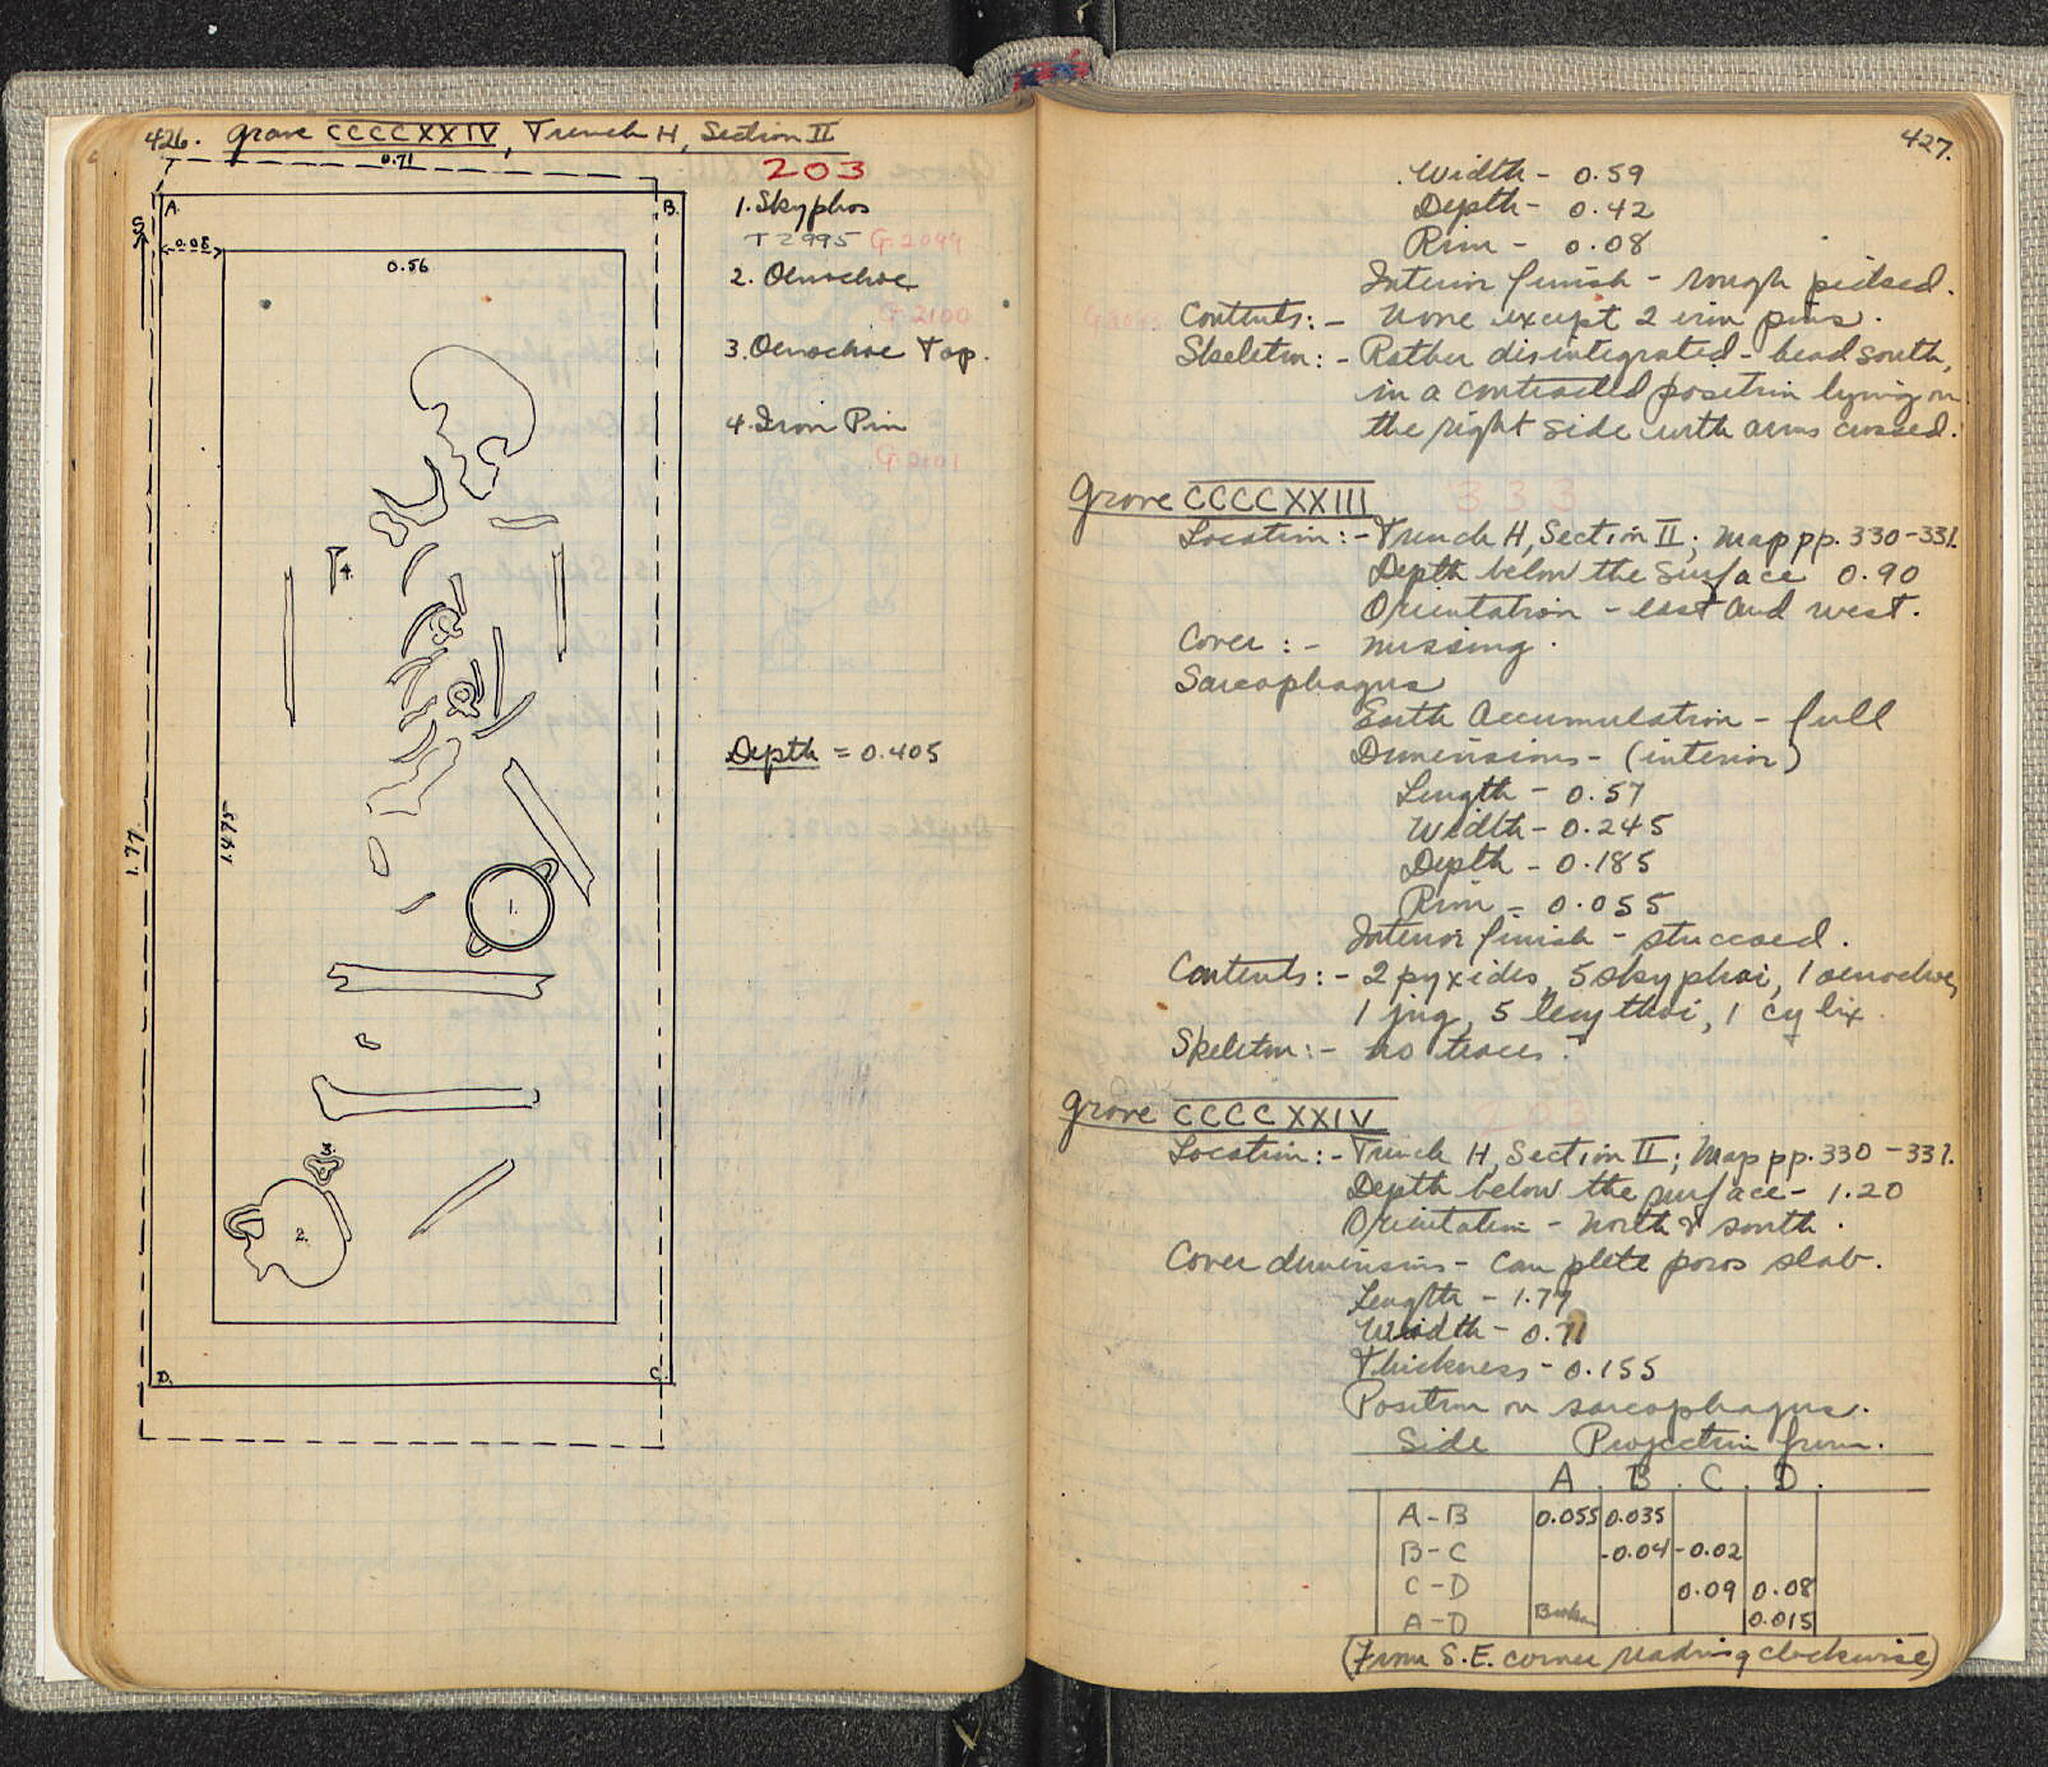 426. Grave CCCCXXIV, Trench H, Section II
203
0.71
A.
B.
S
0.08
0.56
1. Skyphos
T 2995 G. 2099
2. Oenochoe
G. 2100
3. Oenochoe Top.
4. Iron Pin
G. 2101
4.
Depth = 0.405
1.77
1.475
1.
3.
2.
D.
C.
427.
Width - 0.59
Depth - 0.42
Rim - 0.08
Interior finish - rough picked.
Contents: - None except 2 iron pins.
Skeleton: - Rather disintegrated - head south,
in a contracted position lying on
the right side with arms crossed.
Grave CCCCXXIII
333
Location: - Trench H, Section II; Map pp. 330-331.
Depth below the surface 0.90
Orientation - east and west.
Cover: - missing.
Sarcophagus
Earth Accumulation - full
Dimensions - (interior)
Length - 0.57
Width - 0.245
Depth - 0.185
Rim - 0.055
Interior finish - stuccoed.
Contents: - 2 pyxides, 5 skyphoi, 1 oenochoe,
1 jug, 5 lecythoi, 1 cylix.
Skeleton: - no traces.
Grave CCCCXXIV
203
Location: - Trench H, Section II; Map pp. 330-331.
Depth below the surface - 1.20
Orientation - North & south.
Cover dimensions - Complete poros slab.
Length - 1.77
Width - 0.71
Thickness - 0.155
Position on sarcophagus.
Side Projection from.
A. B. C. D.
A-B 0.055 0.035
B-C -0.04 -0.02
C-D 0.09 0.08
A-D Broken 0.015
(From S.E. corner reading clockwise)